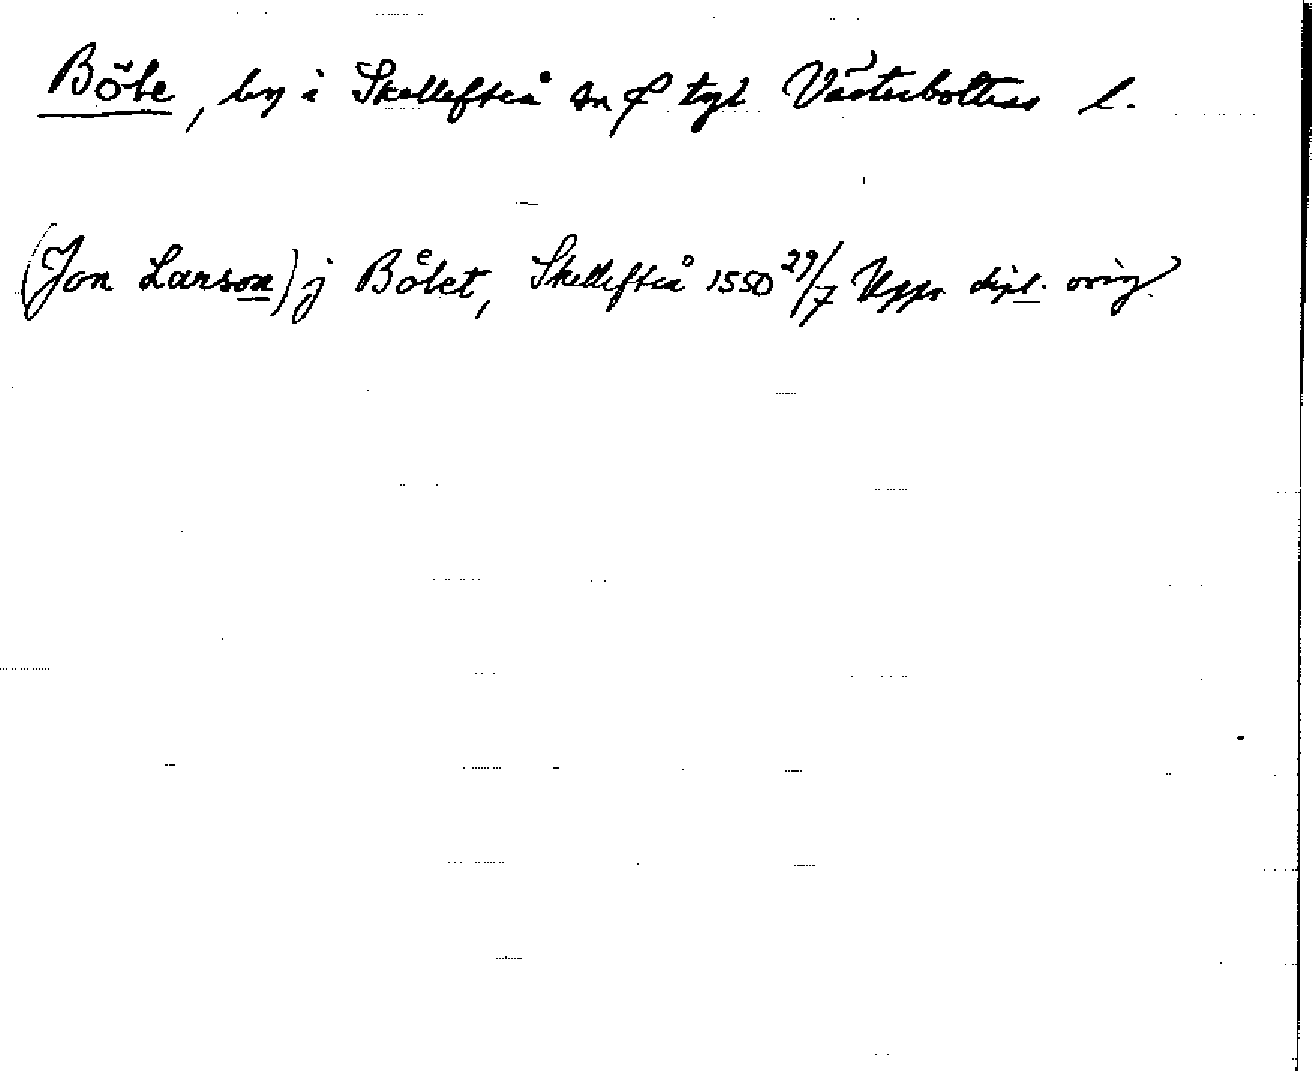 Böle, by i Skellefteå sn o tgl Västerbottens l.
(Jon Larson) j Bölet, Skellefteå 1550 29/7 Upps. dipl. orig.